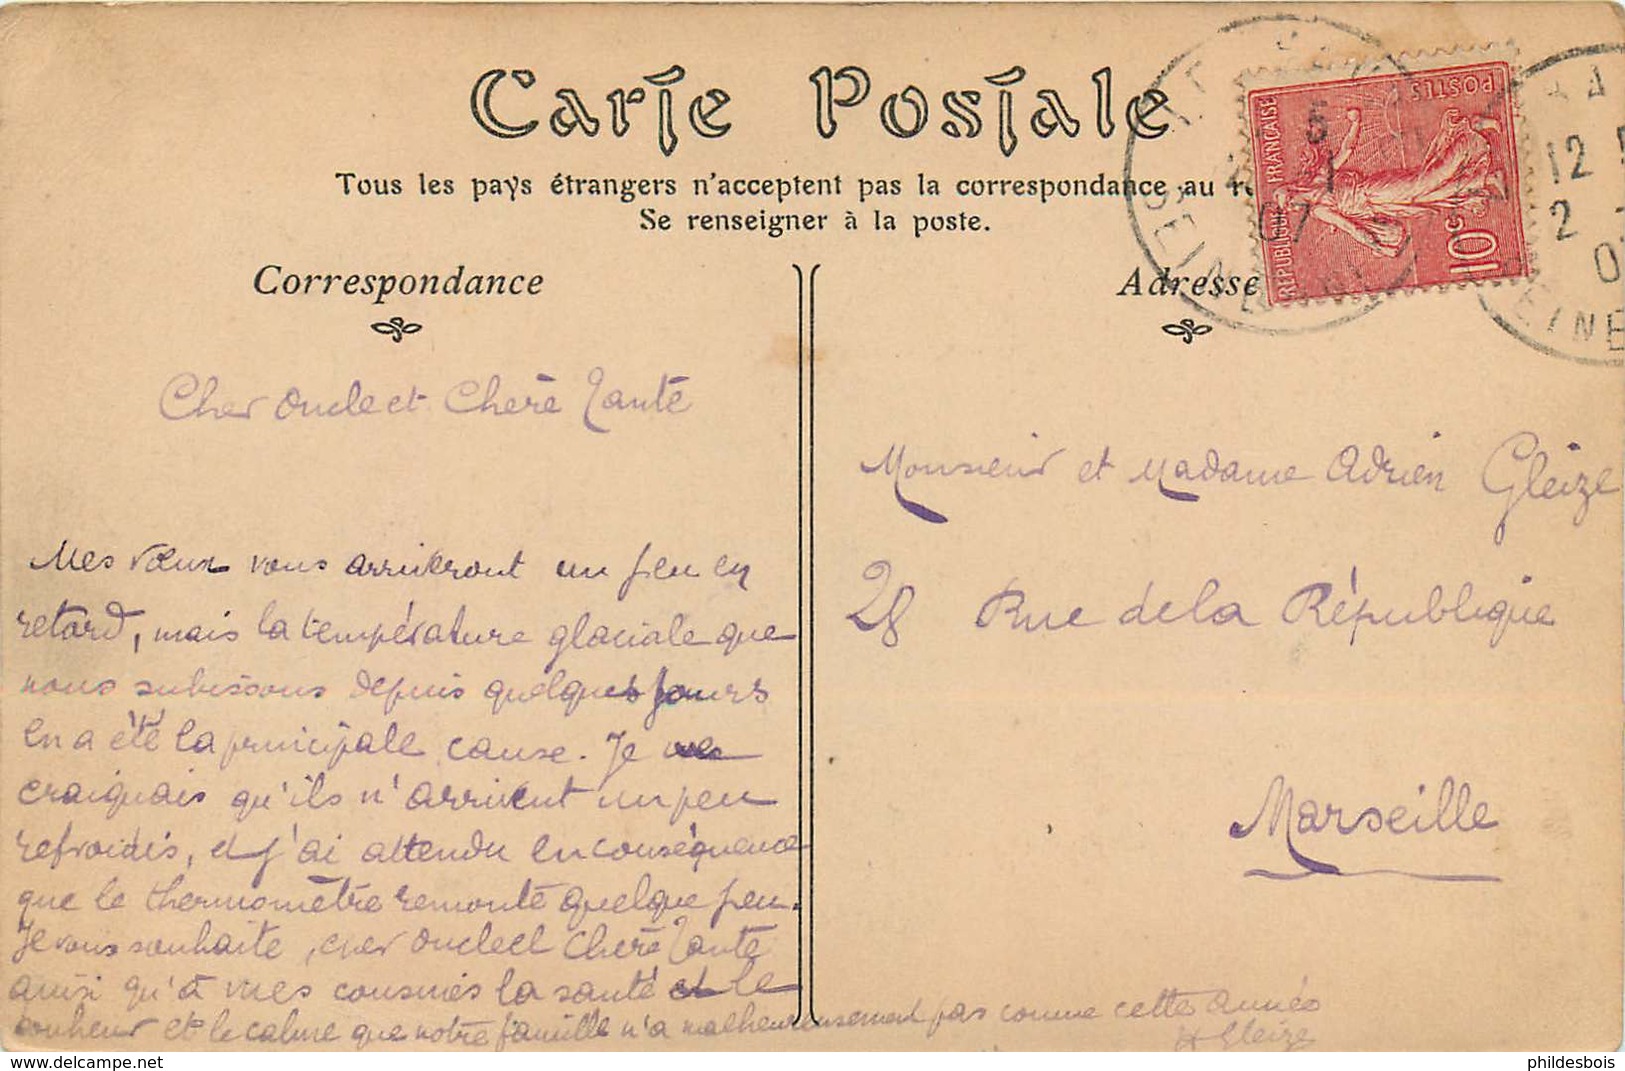 Carte Postale
Tous les pays étrangers n'acceptent pas la correspondance au
Se renseigner à la poste.
Correspondance
Adresse
RÉPUBLIQUE FRANÇAISE
POSTES
10c
5
07
12
2
SEINE
Cher Oncle et Chère Tante
Mes vœux vous arriveront un peu en
retard, mais la température glaciale que
nous subissons depuis quelques jours
en a été la principale cause. Je
craignais qu'ils n'arrivent un peu
refroidis, et j'ai attendu en conséquence
que le thermomètre remonte quelque peu.
Je vous souhaite, cher Oncle et Chère Tante
ainsi qu'à mes cousines la santé et le
bonheur et le calme que notre famille n'a malheureusement pas connue cette année
H Gleize
Monsieur et Madame Adrien Gleize
28 Rue de la République
Marseille
phildesbois